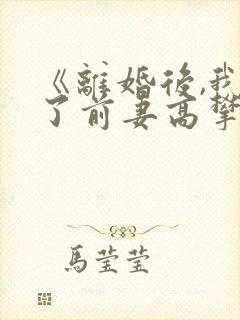 《離婚後,我
了前妻高攀
馬莹莹